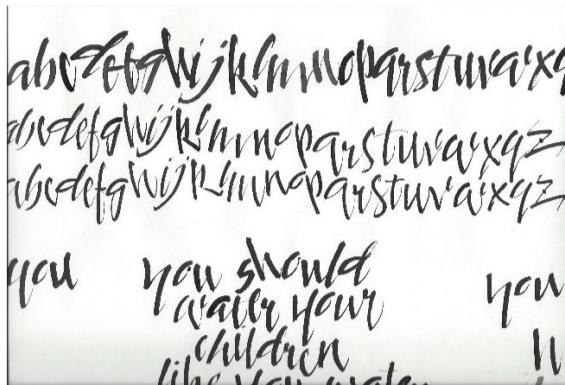 abcdefghijklmnopqrstuvwxy
abcdefghijklmnopqrstuvwxyz
abcdefghijklmnopqrstuvwxyz
you you should you
water your
children
like you water